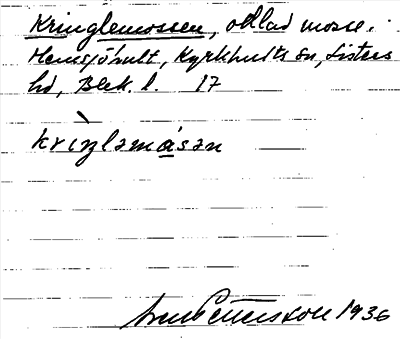 Kringlemossen, odlad mosse.
Hemsjöhult, Kyrkhults sn, Listers
hd, Blek. l. 17
krìŋləmåsən
Pettersson 1936